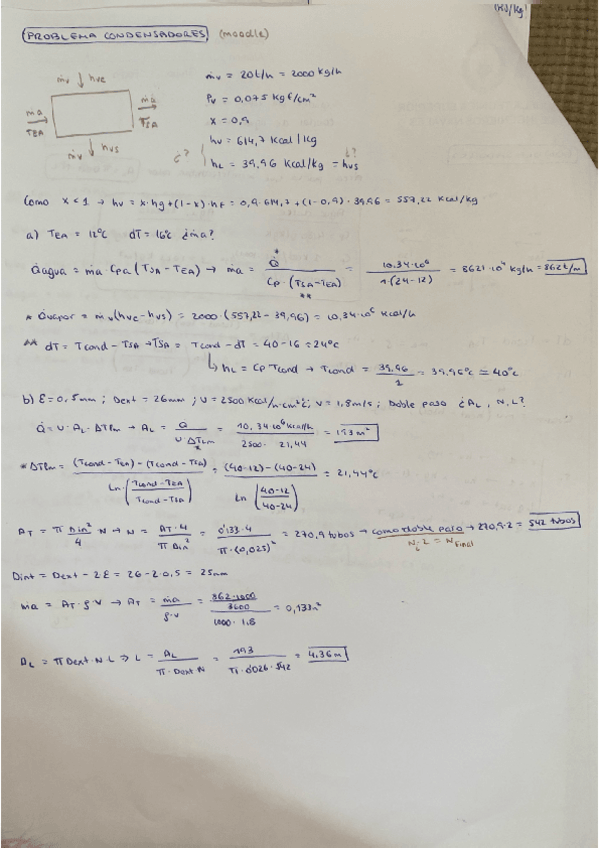 (KJ/kg)
PROBLEMA CONDENSADORES (moodle)
ṁv ↓ hve
ṁa → TEA
ṁa → TSA
ṁv ↓ hvs
ṁv = 20 t/h = 2000 kg/h
Pv = 0,075 kgf/cm²
x = 0,9
hv = 614,7 kcal/kg
¿?
¿?
hL = 39,96 kcal/kg = hvs
Como x < 1 → hv = x·hg + (1-x)·hf = 0,9·614,7 + (1-0,9)·39,96 = 557,22 kcal/kg
a) TEA = 12°C dT = 16°C ¿ṁa?
Q̇agua = ṁa·Cpa (TSA - TEA) → ṁa = Q̇* / Cp·(TSA - TEA)** = 10,34·10⁶ / 1·(24-12) = 8621·10⁴ kg/h = 862 t/h
* Q̇vapor = ṁv(hve - hvs) = 2000·(557,22 - 39,96) = 10,34·10⁶ kcal/h
** dT = Tcond - TSA → TSA = Tcond - dT = 40 - 16 = 24°C
↳ hL = Cp Tcond → Tcond = 39,96 / 1 = 39,96°C ≅ 40°C
b) E = 0,5mm ; Dext = 26mm ; U = 2500 kcal/h·cm²°C ; v = 1,8m/s ; Doble paso ¿AL, N, L?
Q̇ = U·AL·ΔTlm → AL = Q / U·ΔTlm* = 10,34·10⁶ kcal/h / 2500·21,44 = 193 m²
* ΔTlm = (Tcond - TEA) - (Tcond - TSA) / Ln (Tcond - TEA / Tcond - TSA) = (40-12) - (40-24) / Ln (40-12 / 40-24) = 21,44°C
AT = π Din² / 4 N → N = AT·4 / π Din² = 0'133·4 / π·(0,025)² = 270,9 tubos → como doble paso → 270,9·2 = 542 tubos
N·2 = N final
Dint = Dext - 2E = 26 - 2·0,5 = 25mm
ṁa = AT·ρ·v → AT = ṁa / ρ·v = 862·1000 / 3600 / 1000·1.8 = 0,133m²
AL = π Dext·N·L ⇒ L = AL / π·Dext·N = 193 / π·0'026·542 = 4,36 m